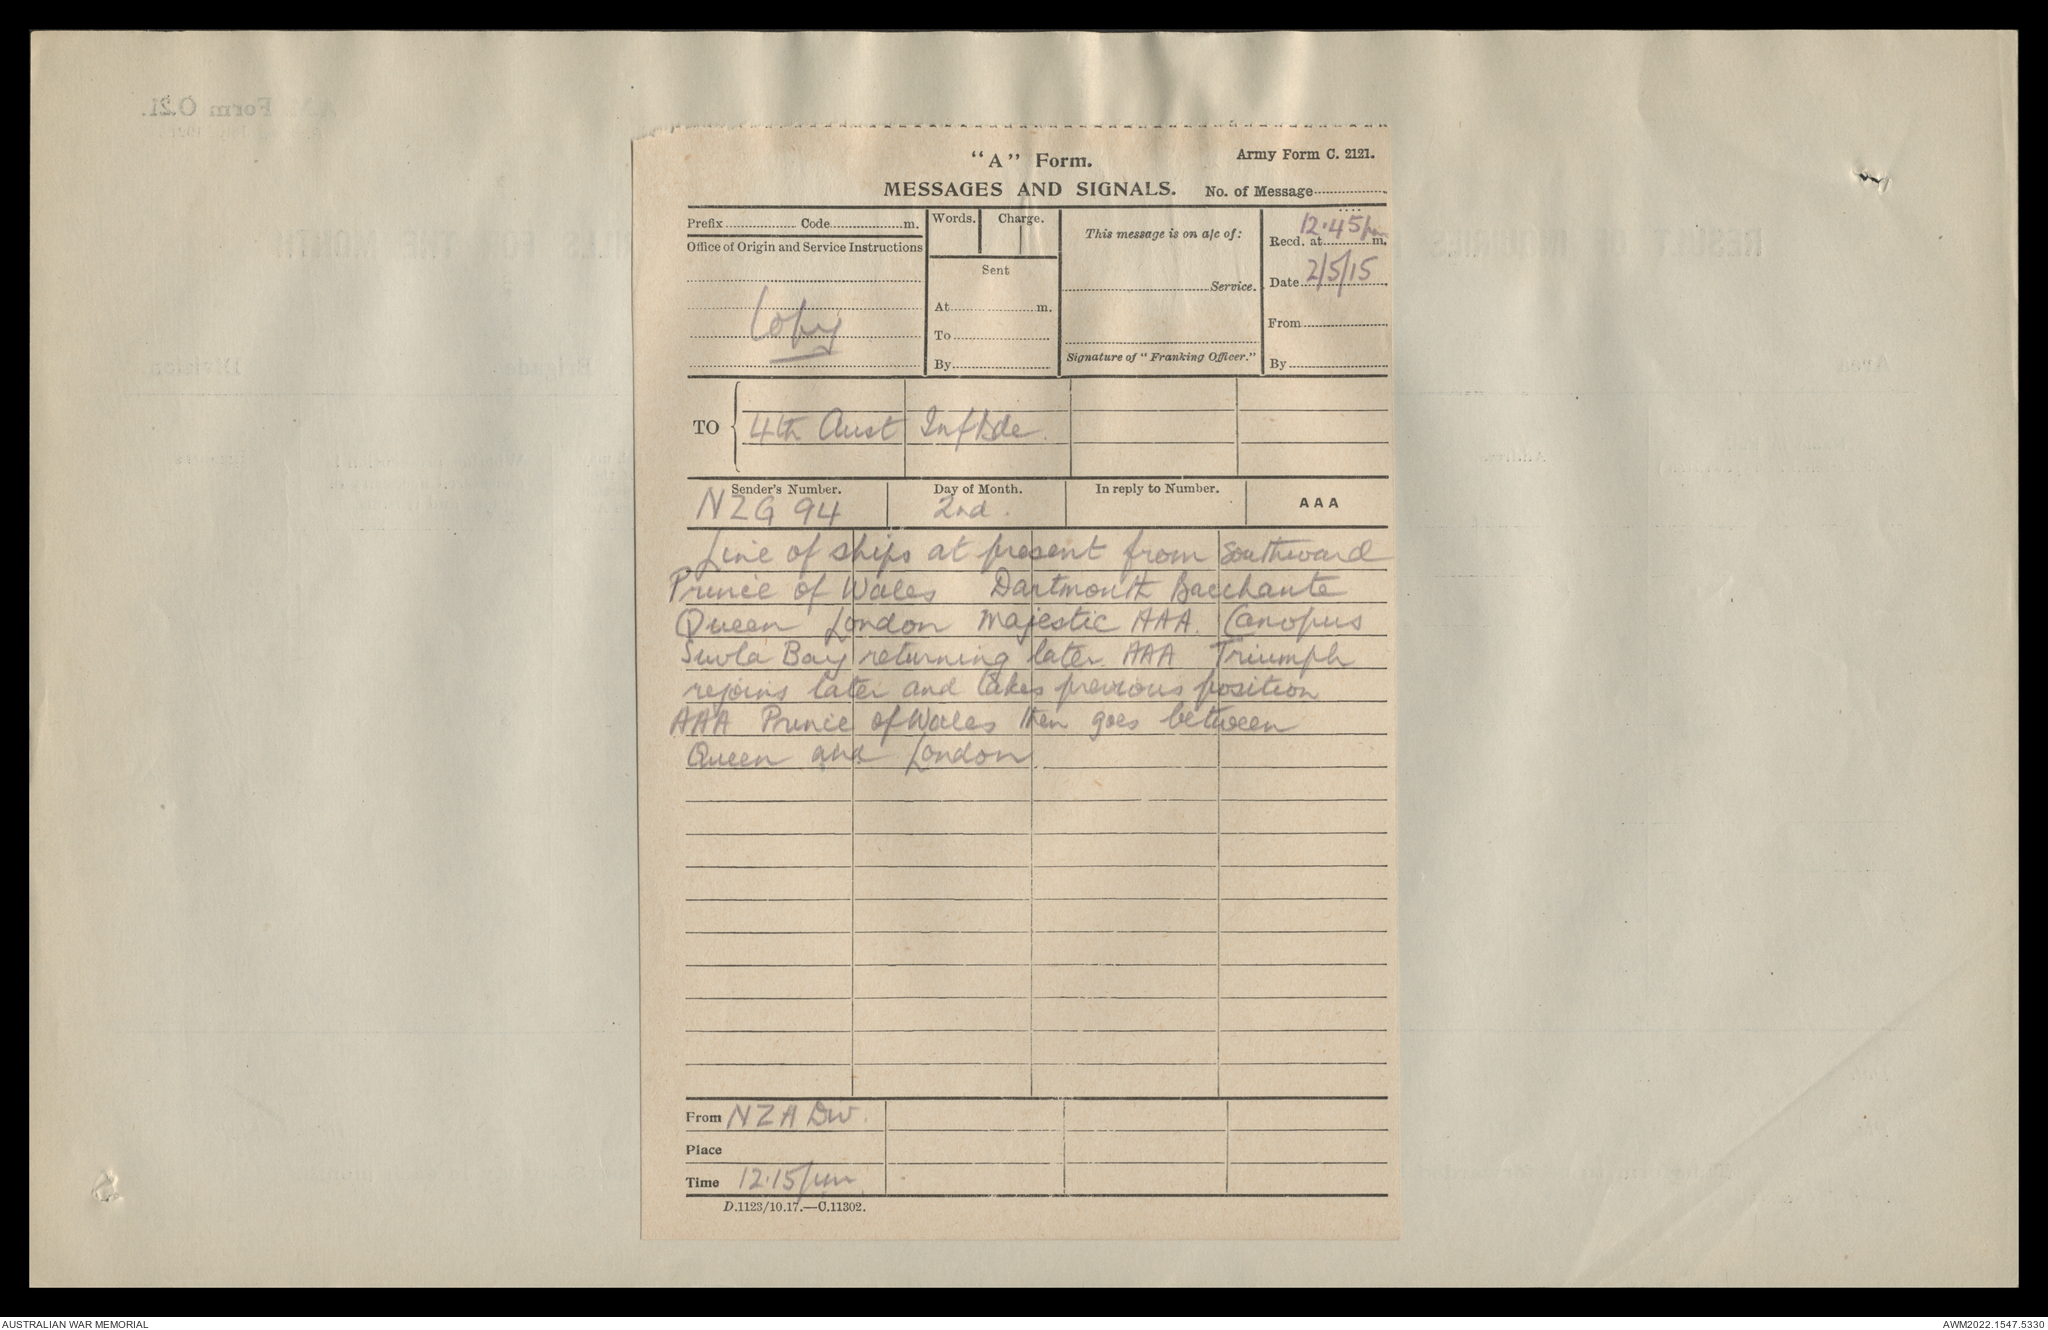 "A" Form.
Army Form C. 2121.
MESSAGES AND SIGNALS.
No. of Message
Prefix Code m.
Words. Charge.
This message is on a/c of:
Recd. at 12.45pm m.
Office of Origin and Service Instructions
Sent
Service.
Date 2/5/15
Copy
At m.
To
From
Signature of "Franking Officer."
By
By
TO 4th Aust Inf Bde.
Sender's Number. Day of Month. In reply to Number. AAA
NZG 94 2nd.
Line of ships at present from Southward
Prince of Wales Dartmouth Bacchante
Queen London Majestic AAA. Canopus
Suvla Bay returning later. AAA Triumph
rejoins later and takes previous position
AAA Prince of Wales then goes between
Queen and London.
From NZA Div.
Place
Time 12.15pm
D.1123/10.17.—C.11302.
AUSTRALIAN WAR MEMORIAL
AWM2022.1547.5330